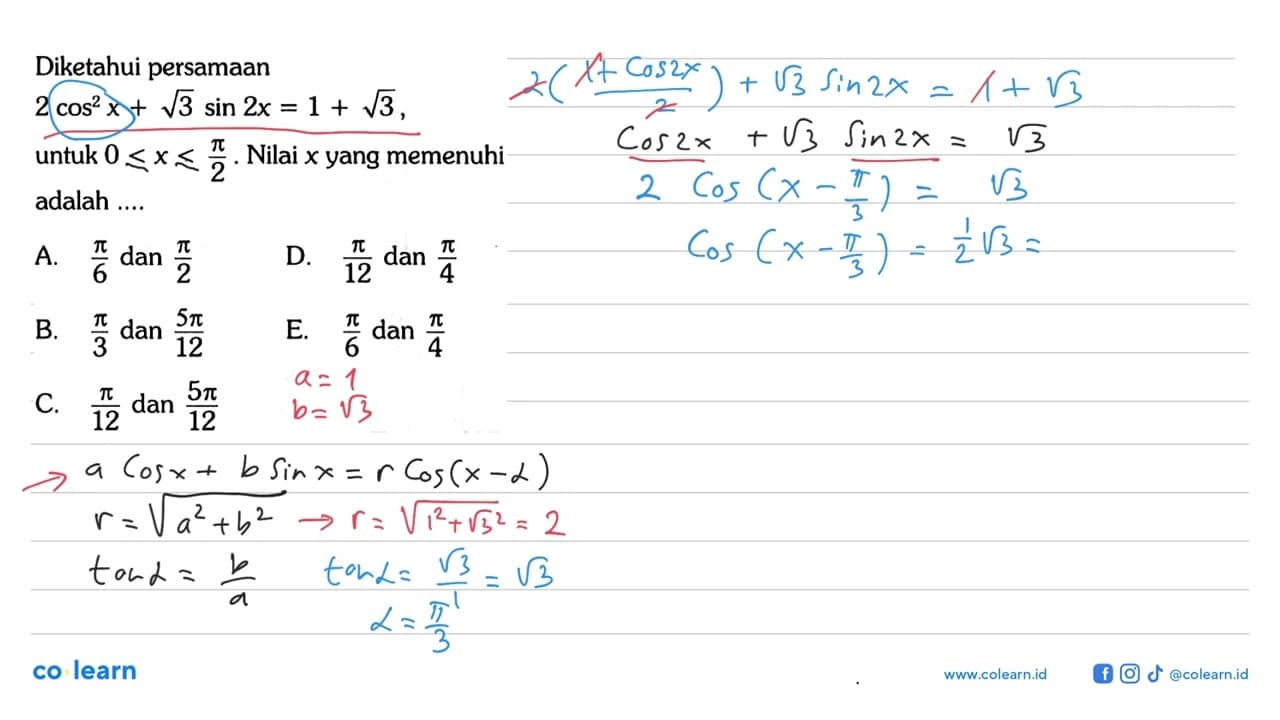 Diketahui persamaan
2 cos² x + √3 sin 2x = 1 + √3,
untuk 0 ⩽ x ⩽ π/2. Nilai x yang memenuhi
adalah ....
A. π/6 dan π/2
D. π/12 dan π/4
B. π/3 dan 5π/12
E. π/6 dan π/4
C. π/12 dan 5π/12
a = 1
b = √3
2(1 + Cos2x/2) + √3 Sin2x = 1 + √3
Cos2x + √3 Sin2x = √3
2 Cos(x − π/3) = √3
Cos(x − π/3) = 1/2 √3 =
→ a Cosx + b Sinx = r Cos(x − α)
r = √a² + b² → r = √1² + √3² = 2
tanα = b/a tanα = √3/1 = √3
α = π/3
co learn
www.colearn.id
@colearn.id